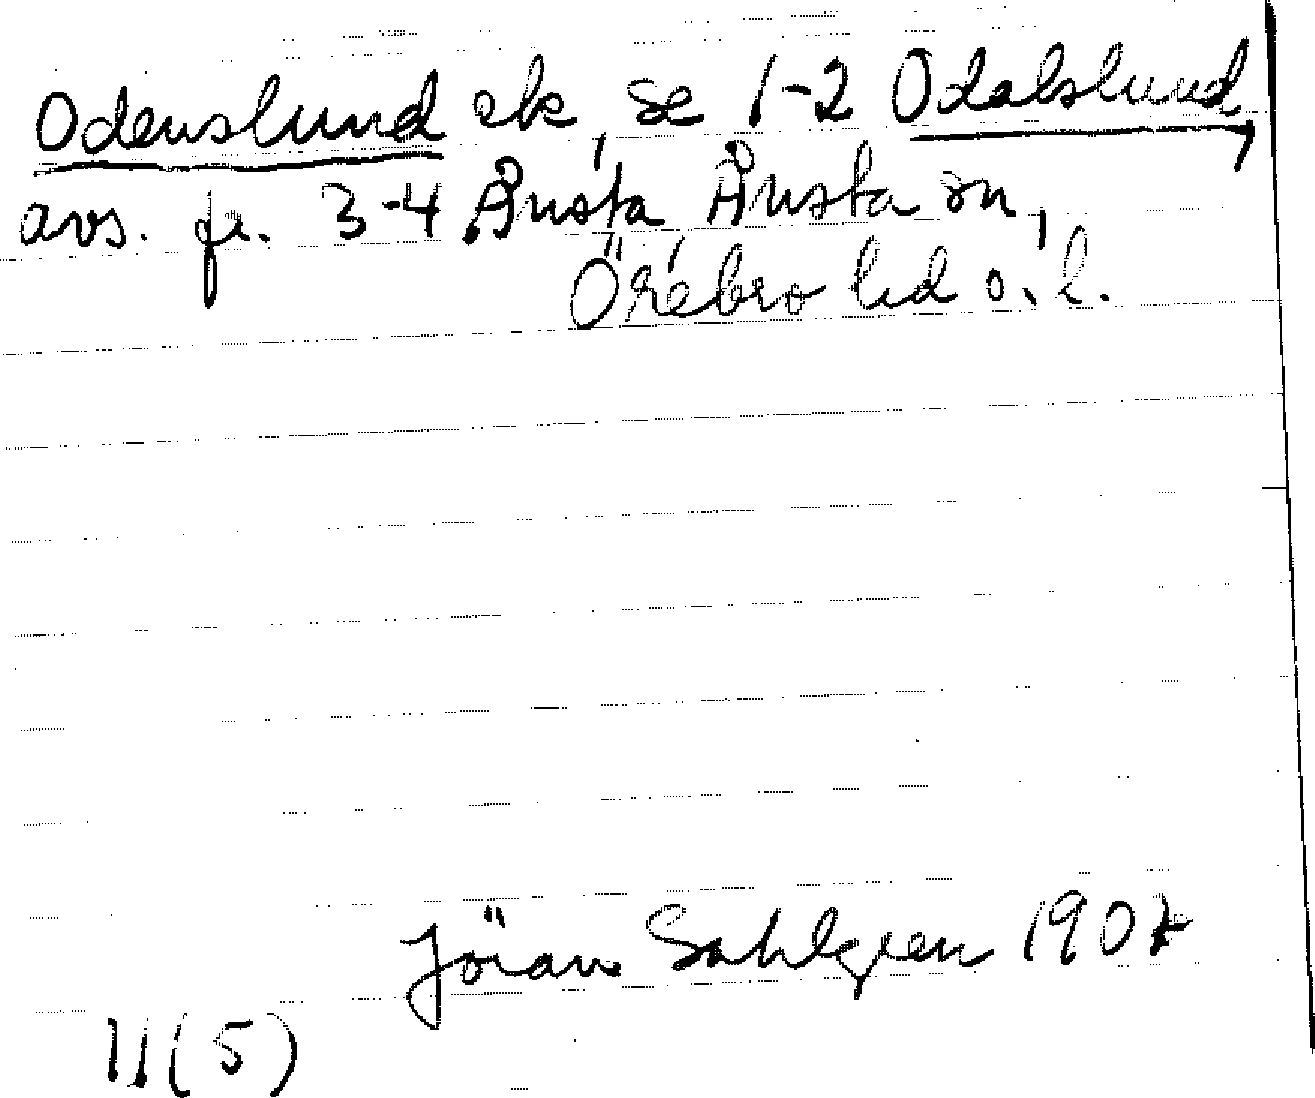 Odenslund ek, se 1-2 Odalslund,
avs. fr. 3-4 Ånsta Ånsta sn,
Örebro hd o. l.
Jöran Sahlgren 190
11(5)